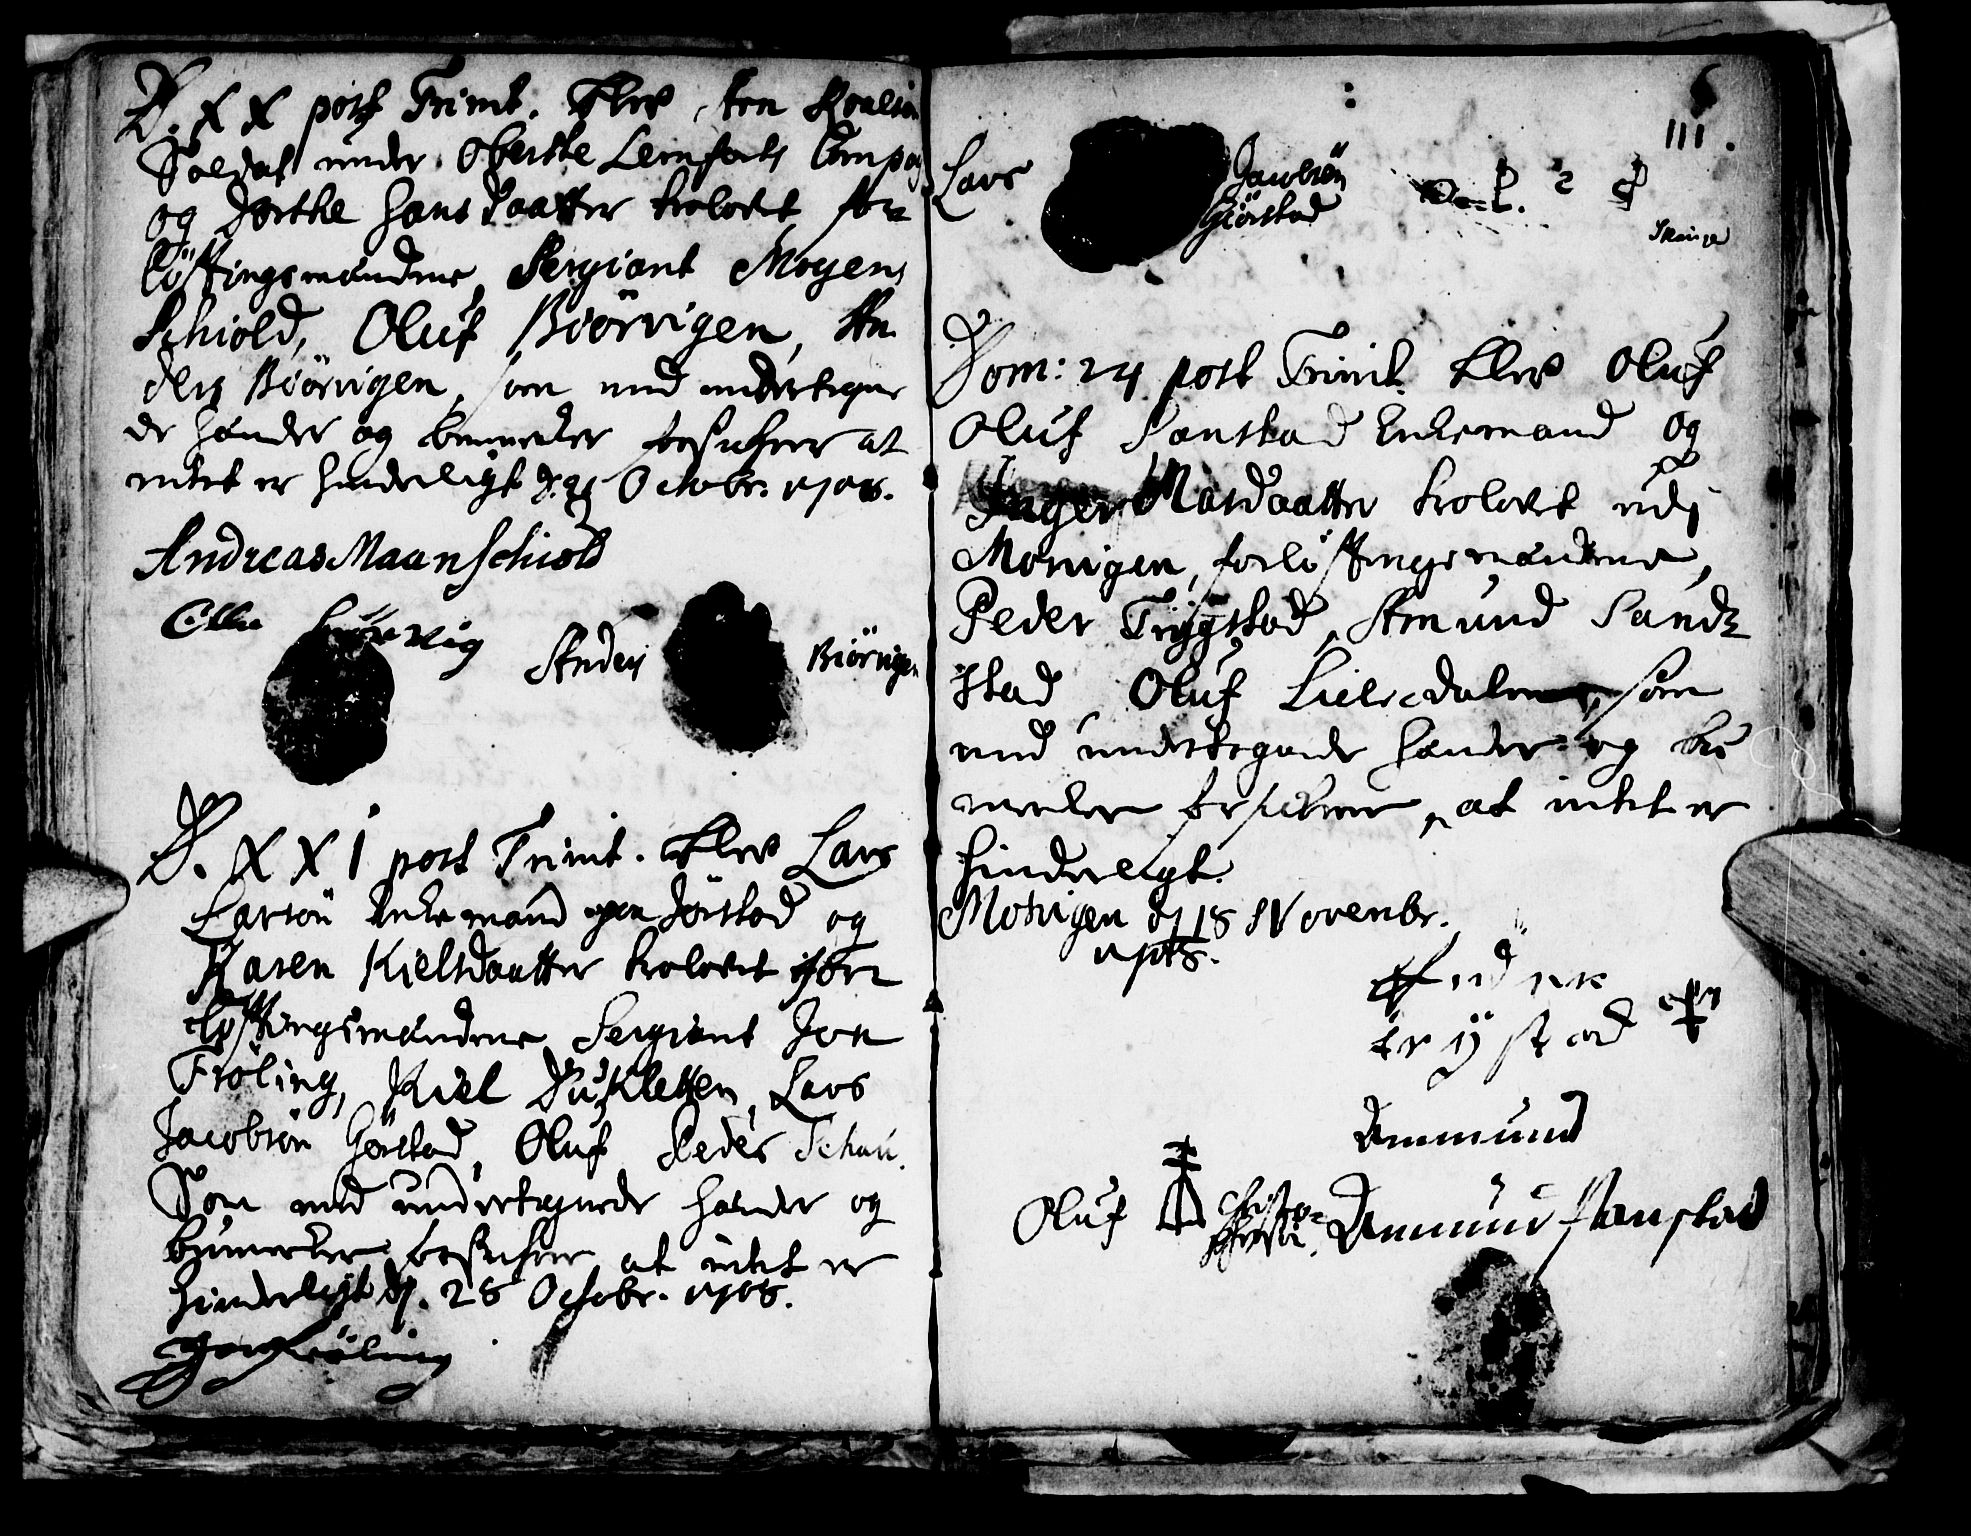 D. XX post Trinit. blev
Soldat under Oberste Lemforts Compag
og Dorthe Hans Daatter trolovet, for=
löftingsmændene Sergiant Mogens
Schiold, Oluf Biörvigen, An
ders Biörvigen, som med undertegne
de hænder og bomerker forsichrer at
intet er hinderligt d. 21 Octobr. 1708.
Andreas Maanschiold
Anders Biörvigen
D. XXI post Trinit. blev Lars
Larsön Enkemand paa Jörstad og
Karen Kielsdaatter trolovet, for=
löftingsmændene Sergiant Jon
Fröling, Kiel DusKletten, Lars
Jacobsön Görstad, Oluf Peder Schau.
Som med undertegnede hænder og
bomerker forsichrer at intet er
hinderligt d. 28 Octobr. 1708.
Jon Fröling
111.
Lars Jacobsön
Giörstad
Dom: 24 post Trinit blev Oluf
Oluf Sanstad Enkemand og
Inger Marsdaatter trolovet udj
Moevigen, forlöftingsmændene,
Peder Trygstad, Amund Sand=
stad, Oluf Lieledalen, som
med undertegnede hænder og bo
merker forsichrer, at intet er
hinderligt.
Motvigen d 18 Novembr.
1708.
trystad
Ammund
Oluf
Ammund Sanstad